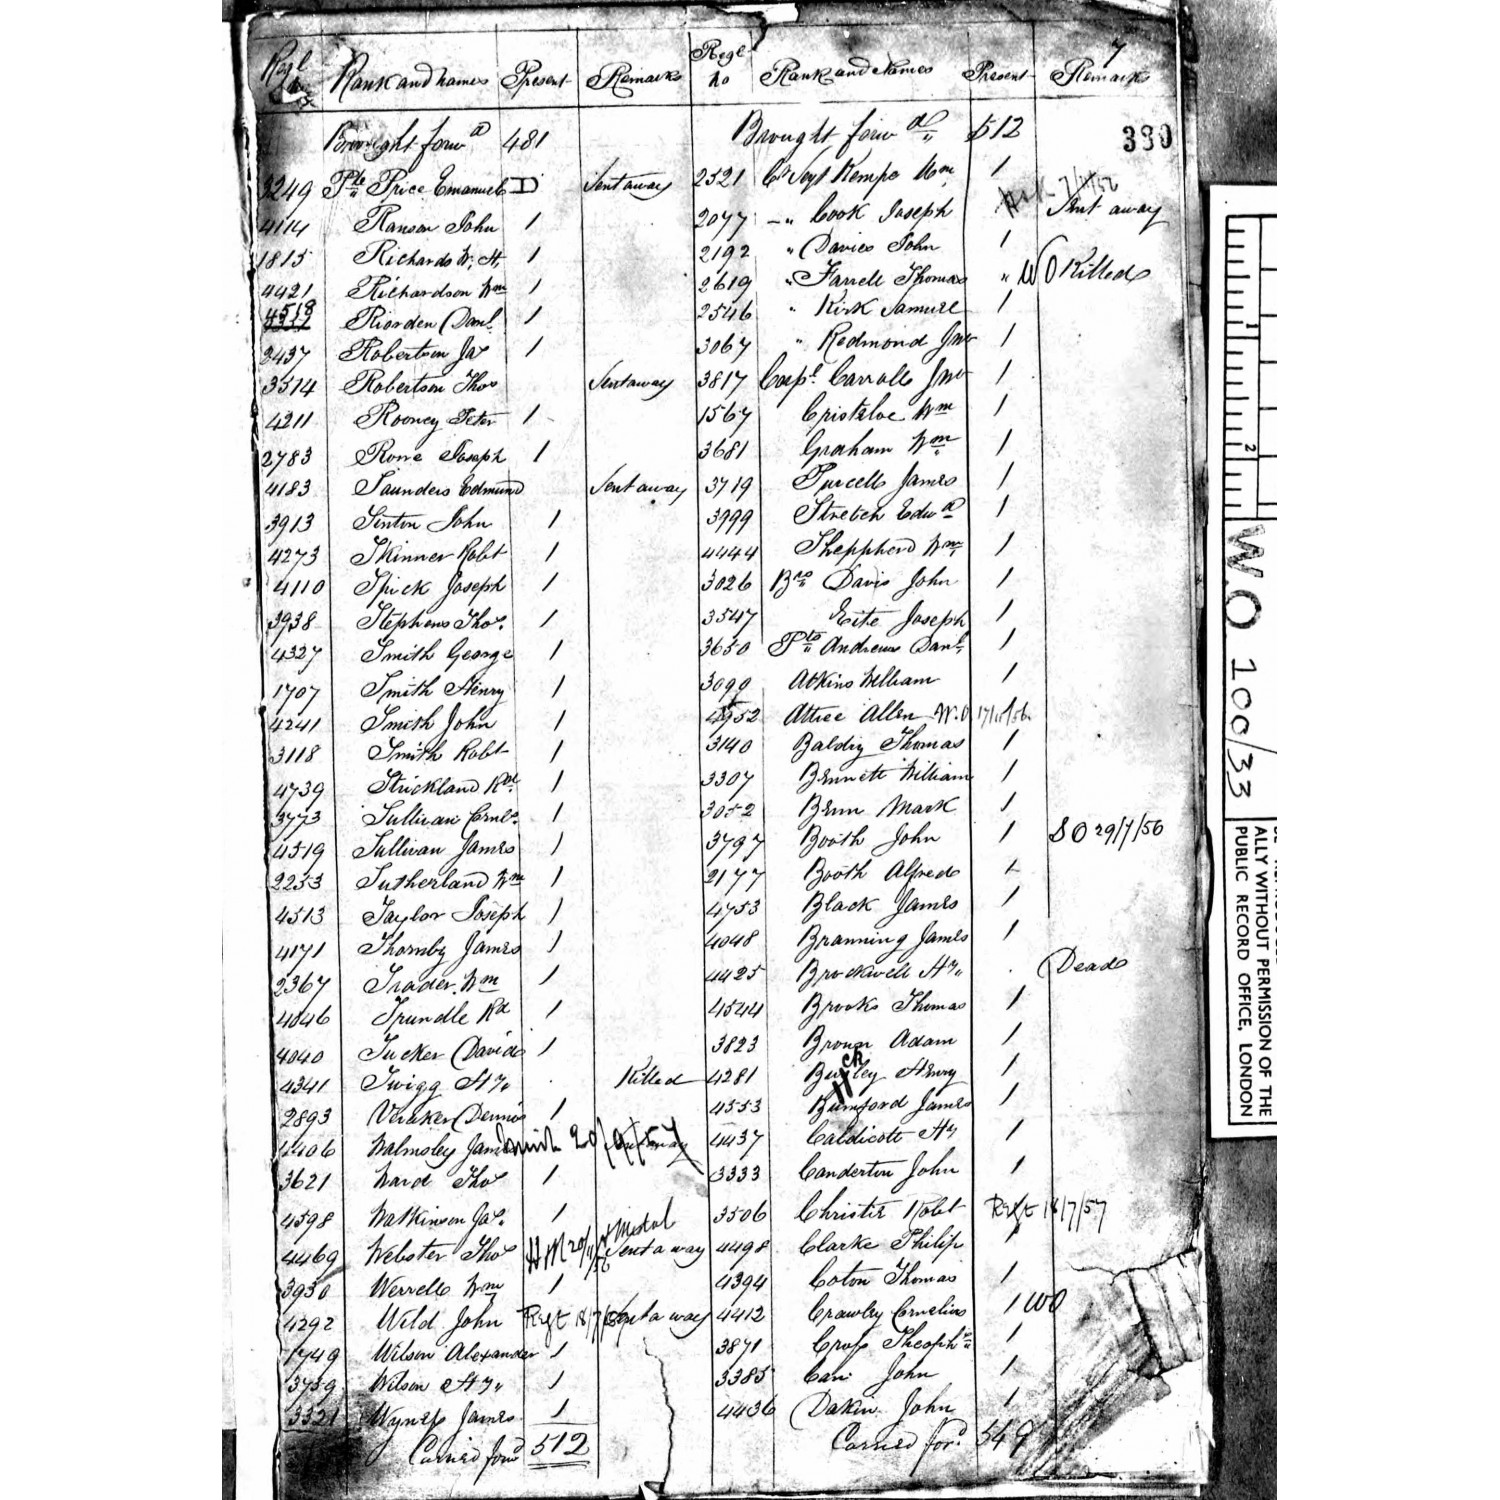 Regl No Rank and Names Present Remarks
Brought forwd 481
3249 Pte Price Emanuel D Sent away
4114 Ranson John 1
1815 Richards W. H. 1
4421 Richardson Wm 1
4518 Riorden Danl 1
2437 Robertson Jas 1
3514 Robertson Thos Sent away
4211 Rooney Peter 1
2783 Rowe Joseph 1
4183 Saunders Edmund Sent away
3913 Senton John 1
4273 Skinner Robt 1
4110 Spick Joseph 1
3938 Stephens Thos. 1
4327 Smith George 1
1707 Smith Henry 1
4241 Smith John 1
3118 Smith Robt 1
4739 Strickland Rd. 1
3773 Sullivan Cornls. 1
4519 Sullivan James 1
2253 Sutherland Wm 1
4513 Taylor Joseph 1
4171 Thornby James 1
2367 Trader Wm 1
4046 Trundle Rd 1
4040 Tucker David 1
4341 Twigg Hy. Killed
2893 Veraker Dennis 1
4406 Walmsley James 20/9/57 Sent away
3621 Ward Thos 1
4598 Watkinson Jas. 1
4469 Webster Thos H M 20/11/56 Medal Sent away
3930 Werrell Wm 1
4292 Wild John Regt 18/7/57 Sent away
1749 Wilson Alexander 1
3759 Wilson Hy. 1
3321 Wyness James 1
Carried forwd 512
Regl No Rank and Names Present Remarks
7
Brought forwd 512
330
2321 Cr Sejt Kempo Wm 1
2077 " Cook Joseph Sent away
2192 " Davies John 1
2619 " Farrell Thomas " WO Killed
2546 " Kirk Samuel 1
3067 " Redmond Jno 1
3817 Corpl. Carroll Jno 1
1567 Cristeloe Wm 1
3681 Graham Wm 1
3719 Purcell James 1
3999 Stretch Edwd 1
4444 Shepherd Wm 1
3026 Drs Davis John 1
3547 Eite Joseph 1
3650 Pte Andrews Danl. 1
3090 Atkins William 1
4552 Attree Allen W.O 17/11/56
3140 Baldry Thomas 1
3307 Bennett William 1
3052 Benn Mark 1
3797 Booth John 1 SO 29/7/56
2177 Booth Alfred 1
4753 Black James 1
4048 Branning James 1
4425 Brockwell Hy. Dead
4544 Brooks Thomas 1
3823 Brown Adam 1
4281 Burley Henry 1
4553 Bumford James 1
4437 Caldicott Hy 1
3333 Canderton John 1
3506 Christie Robt Regt 18/7/57
4498 Clarke Philip 1
4394 Coton Thomas 1
4412 Crawley Cornelius 1 WO
3871 Cross Theophs 1
3385 Carr John 1
4436 Dakin John 1
Carried ford 549
W.O 100/33
1
2
ALLY WITHOUT PERMISSION OF THE
PUBLIC RECORD OFFICE, LONDON